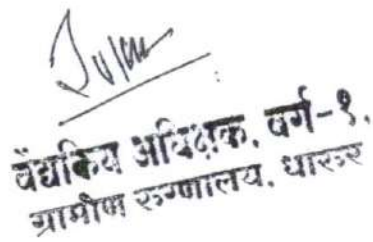 वैद्यकिय अधिक्षक, वर्ग-१,
ग्रामीण रुग्णालय, धारूर